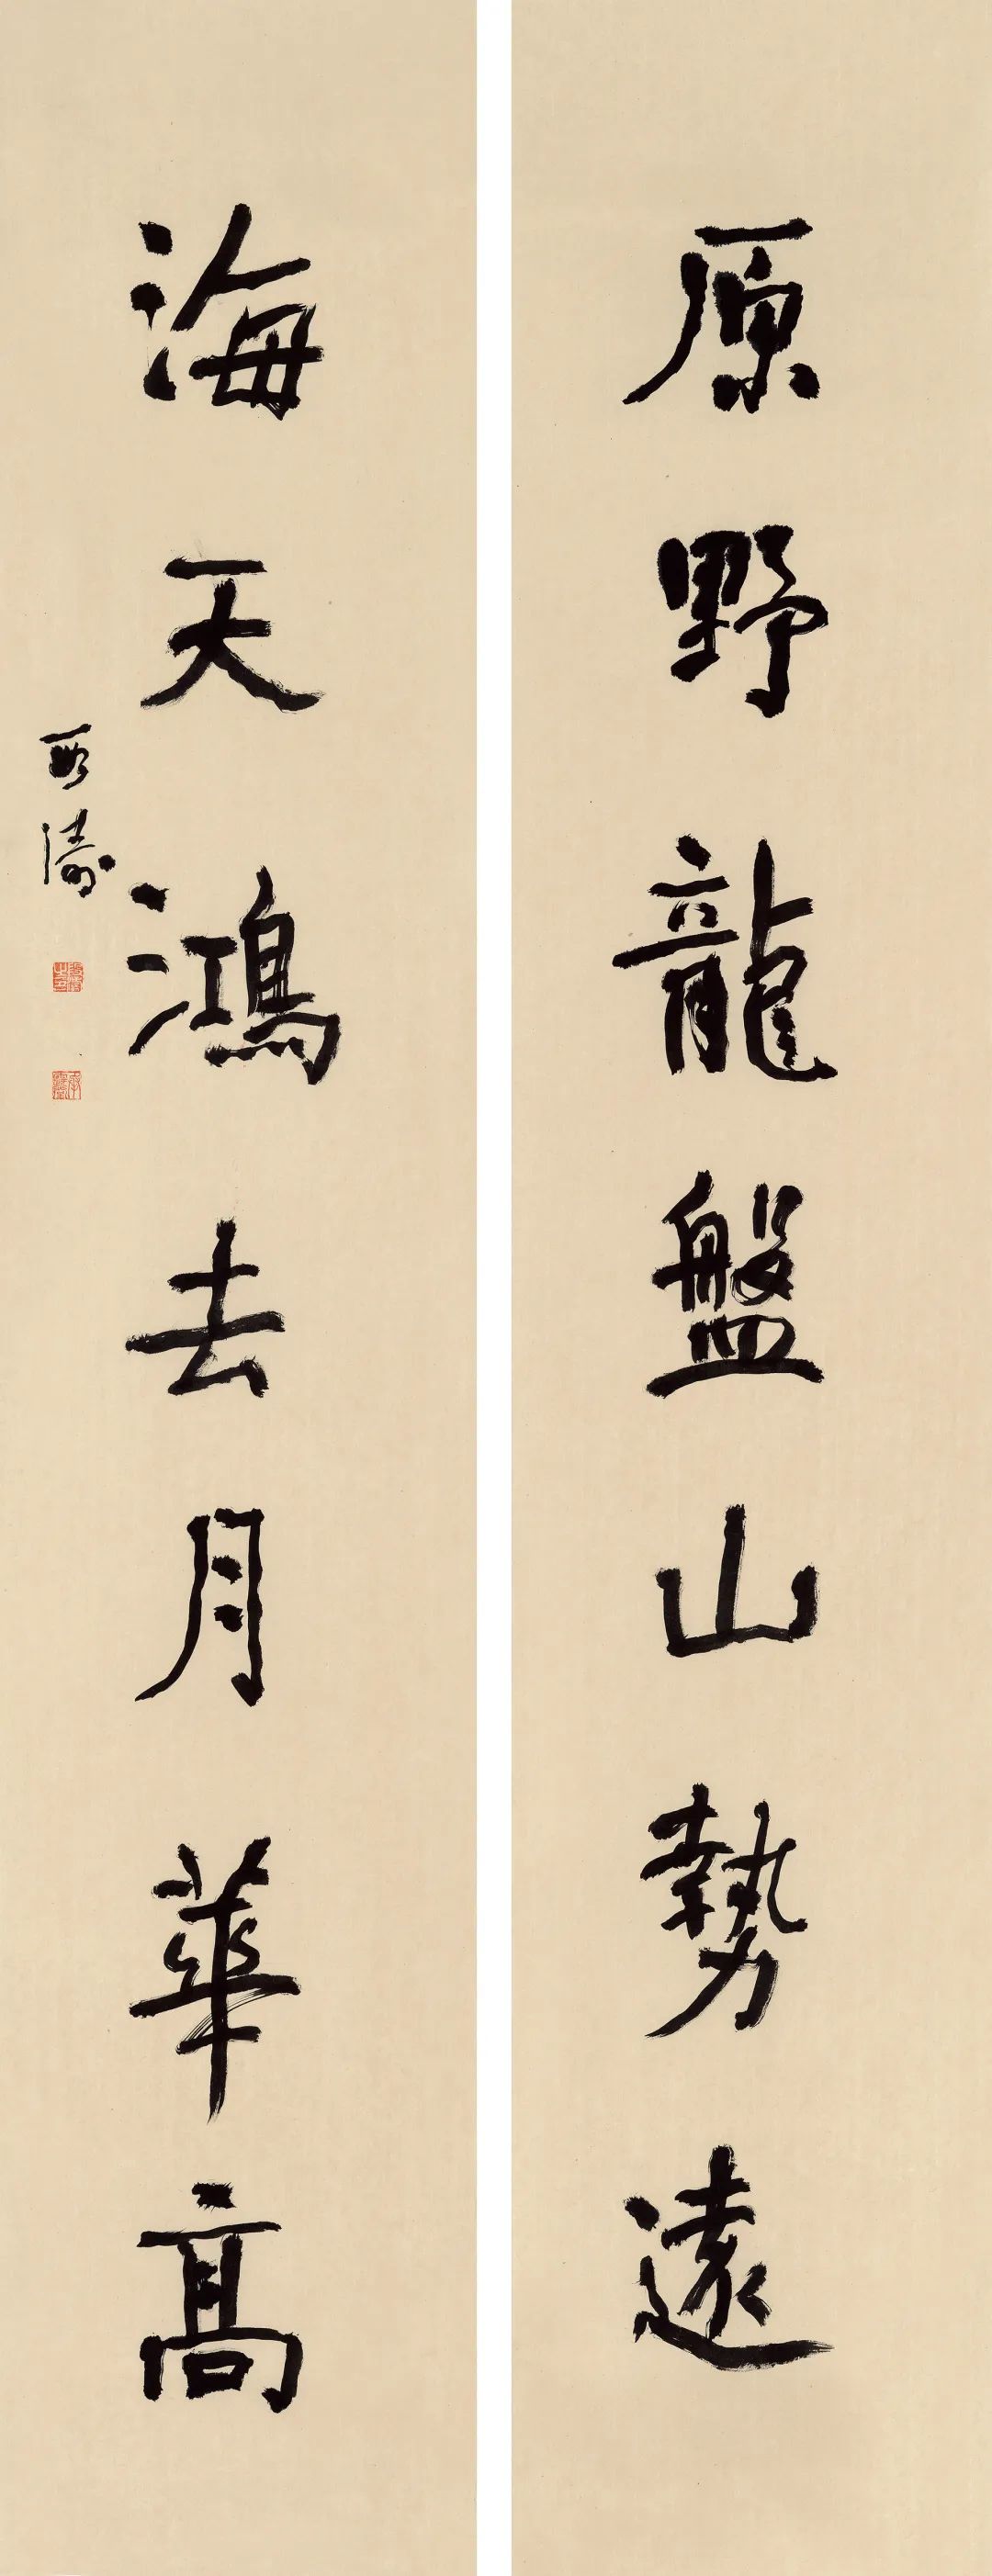 原野龍盤山勢遠
海天鴻去月華高